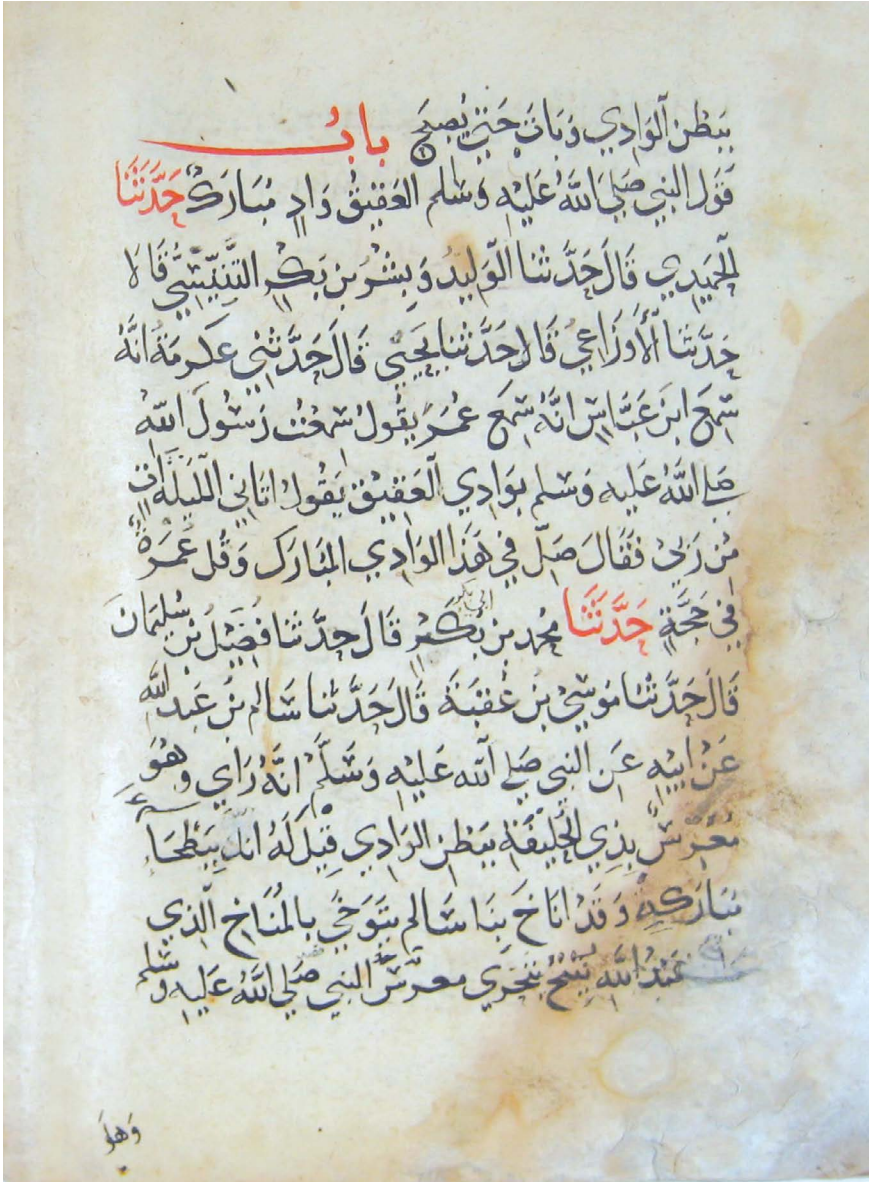 ببَطْنِ الْوَادِي وَبَاتَ حَتَّى يُصْبِحَ بابُ
قَوْلِ النبي صَلى اللهُ عَلَيْهِ وَسَلم العَقِيقُ وَادٍ مُبَارَكٌ حَدَّثَنَا
الْحُمَيدِي قَالَ حَدَّثنا الْوَلِيدُ وَبِشْرُ بن بَكْرٍ التِّنِّيسِيُّ قَالا
حَدَّثنا الْأَوزَاعِيُّ قَالَ حَدَّثنا يَحيَى قَالَ حَدَّثَنِي عكرمَةُ انَّهُ
سَمِعَ ابنَ عَبَّاسٍ انَّهُ سَمِعَ عُمَرَ يَقُولُ سَمعْتُ رَسُولَ اللهِ
صَلى اللهُ عَليه وَسَلم بِوَادِي الْعَقِيْقِ يَقُولُ اتَانِي اللَّيلَةَ اتٍ
مِنْ رَبِّي فَقَالَ صَلِّ في هَذَا الوَادِي المُبَارَك وَقُل عُمْرَةٌ
في حَجَّةٍ حَدَّثَنَا محمد بن ابي بَكْرٍ قَالَ حدَّثنا فُضَيْلُ بْنُ سُلَيمَانَ
قَالَ حَدَّثنَا مُوسَى بنُ عُقبَةَ قَالَ حَدَّثنا سَالم بنُ عَبْدِ اللهِ
عَنْ ابِيْهِ عَنِ النبي صَلى الله عَلَيْهِ وَسَلَّمَ انَّهُ رَاي وَهُوَ
مُعَرِّسٌ بِذِي الْحُلَيْفَةِ ببَطْنِ الوَادِي قِيْلَ لَهُ انك ببَطْحَآءَ
مُبَارَكةٍ وَقَدْ انَاخَ بِنَا سَالم يَتَوَخَّى بالمُنَاخِ الَّذِي
عَبْدُ اللهِ يُنِيخُ يَتَحَرَّى معرَّسَ النبي صَلى اللهُ عَلَيه وَسَلم
وَهْوَ